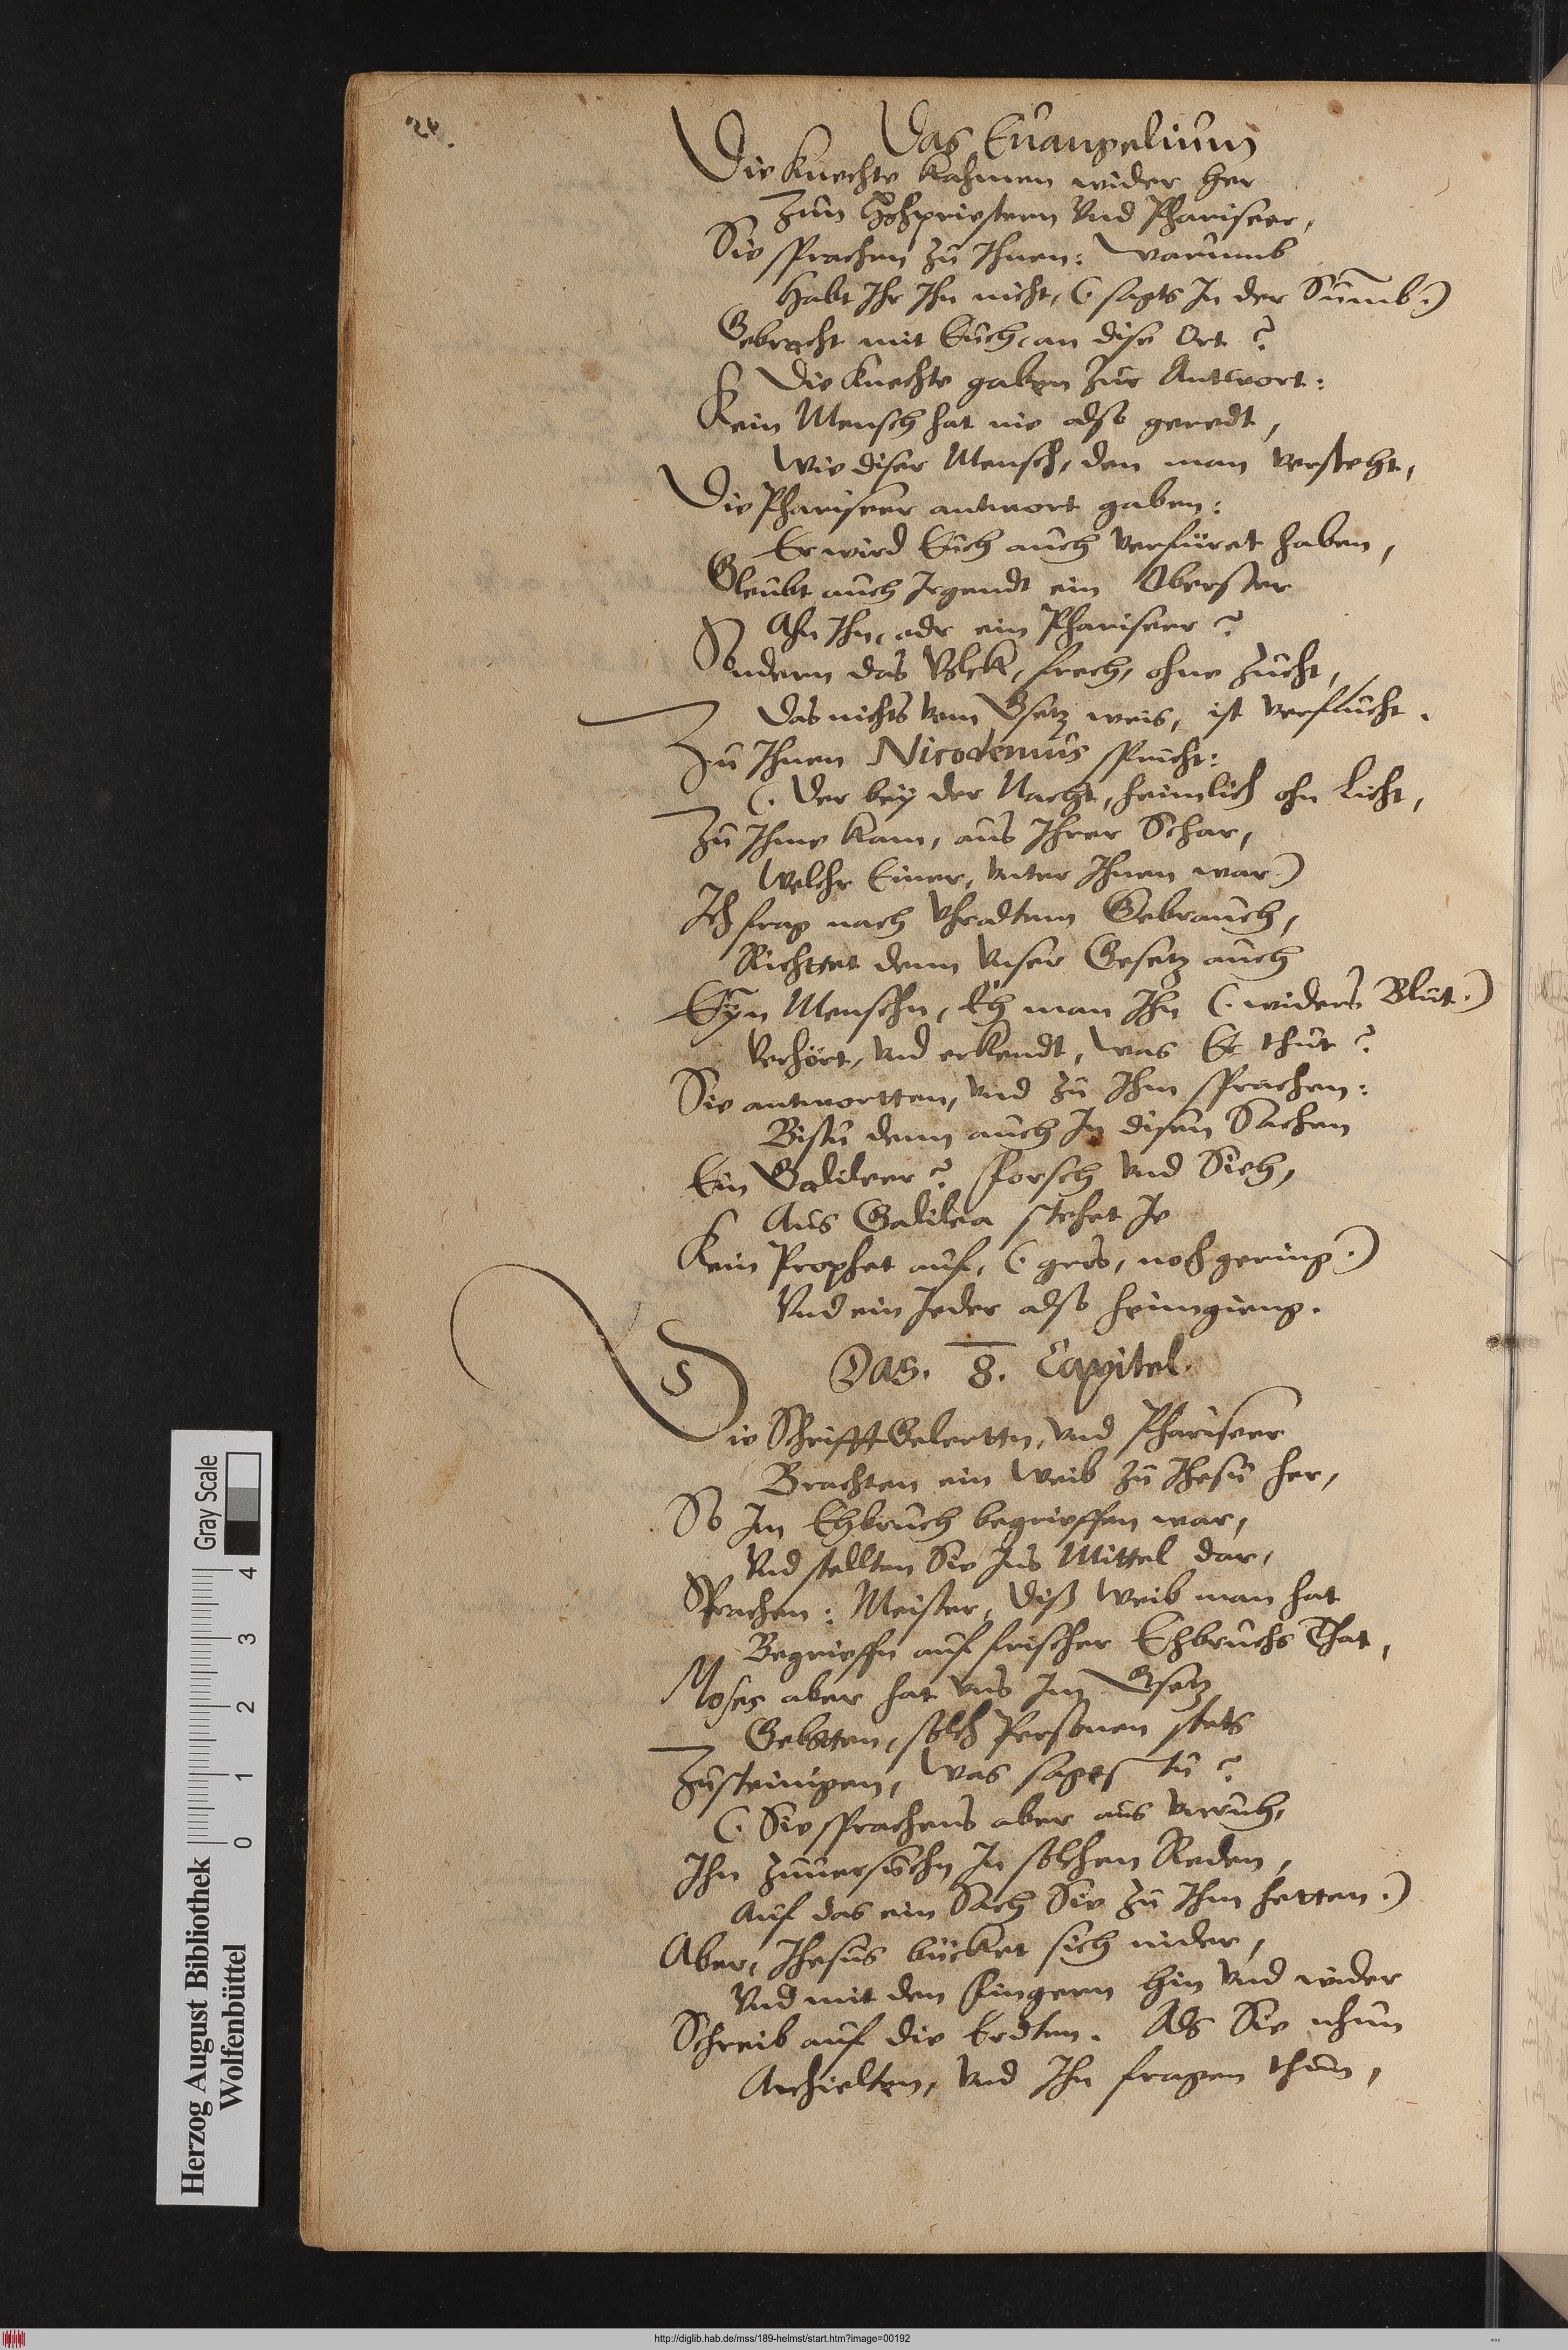 24.
Das Euangelium
Die Knechte kahmen wider her
Zun Hohpriestern Vnd Phariseer,
Sie sprachen zu Ihnen: Warumb
Habt Ihr Ihn nicht, (: sagts In der Summb:)
Gebracht mit Euch, an dise Ort?
Die Knechte gaben zur Antwort:
Kein Mensch hat nie also geredt,
Wie diser Mensch, den man versteht,
Die Phariseer antwort gaben:
Er wird Euch auch verfüret haben,
Gleubt auch Irgendt ein Oberster
Ahn Ihn, odr ein Phariseer?
Sondern das Volck, frech, ohne zucht,
Das nichts vom Gsetz weis, ist verflucht.
Zu Ihnen Nicodemus spricht:
(: Der bey der Nacht, heimlich ohn Licht,
Zu Ihme kam, aus Ihrer Schar,
Welchr Einer, vnter Ihnen war:)
Ich frag nach Vhraltem Gebrauch,
Richttet denn Vnser Gesetz auch
Eyn Menschn, Eh man Ihn (: widers Blut:)
Verhört, vnd erkendt, was Er thut?
Sie antwortten, vnd zu Ihm sprachen:
Bistu denn auch In disen Sachen
Ein Galileer? Forsch vnd Sieh,
Aus Galilea stehet Je
Kein Prophet auf, (: gros, noch gering:)
Vnd ein Jeder also heimgieng.
DAS. 8. Capitel.
Die Schrifft Gelerttn, vnd Phariseer
Brachten ein Weib zu Ihesu her,
So Im Ehbruch begrieffen war,
Vnd stellten Sie Ins Mittel dar,
Sprachen: Meister, diß Weib man hat
Begrieffn auf frischer Ehbruchs That,
Moses aber hat Vns Im Gsetz
Gebotten, solch Personen stets
Zusteinigen, Was sagest tu?
(: Sie sprachens aber aus vnruh,
Ihn zuuersuchn In solchen Reden,
Auf das ein Sach Sie zu Ihm hetten:)
Aber, Ihesus bücket sich nider,
Vnd mit den Fingern hin vnd wider
Schreib auf die Erdten. Als Sie nhun
Anhielten, vnd Ihn fragen thun,
Herzog August Bibliothek
Wolfenbüttel
Gray Scale
0 1 2 3 4
http://diglib.hab.de/mss/189-helmst/start.htm?image=00192